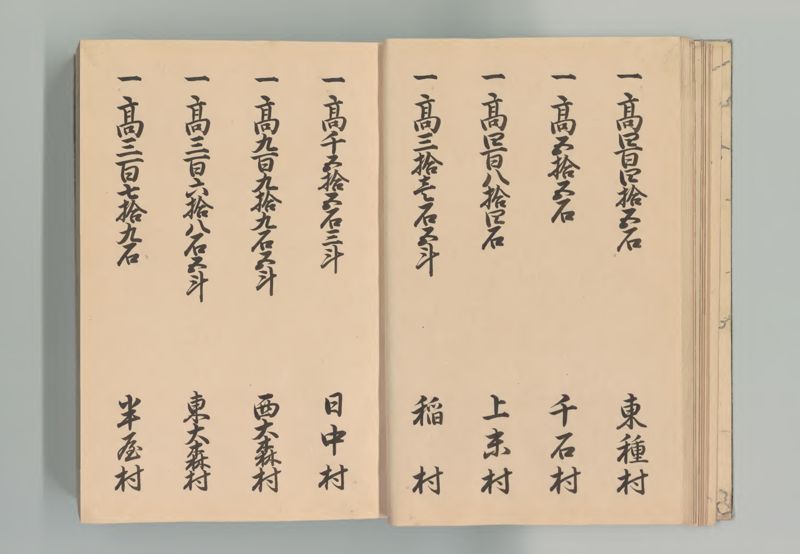 一 高四百四拾五石 東種村
一 高五拾五石 千石村
一 高四百八拾四石 上末村
一 高三拾壱石五斗 稲村
一 高千五拾五石三斗 日中村
一 高九百九拾九石五斗 西大森村
一 高三百六拾八石五斗 東大森村
一 高三百七拾九石 半屋村